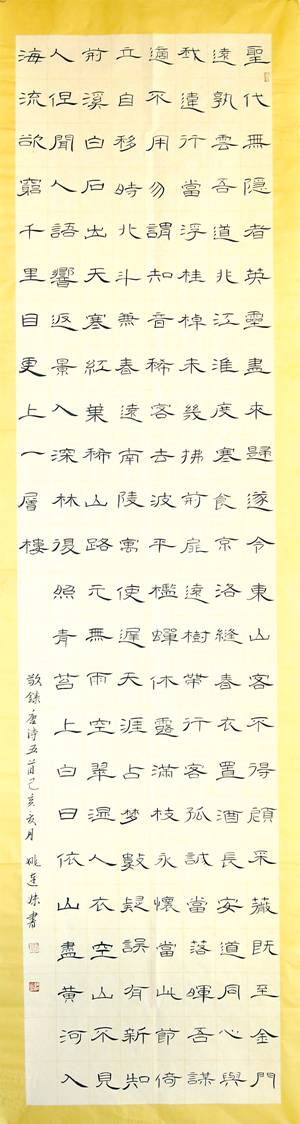 聖代無隱者英靈盡來歸遂令東山客不得顧采薇既至金門
遠孰雲吾道非江淮度寒食京洛縫春衣置酒長安道同心與
我違行當浮桂棹未幾拂荊扉遠樹帶行客孤誠當落暉吾謀
適不用勿謂知音稀客去波平檻蟬休露滿枝永懷當此節倚
立自移時北斗兼春遠南陵寓使遲天涯占夢數疑誤有新知
荊溪白石出天寒紅葉稀山路元無雨空翠濕人衣空山不見
人但聞人語響返景入深林復照青苔上白日依山盡黃河入
海流欲窮千里目更上一層樓
敬錄唐詩五首己亥亥月 姚蓮書